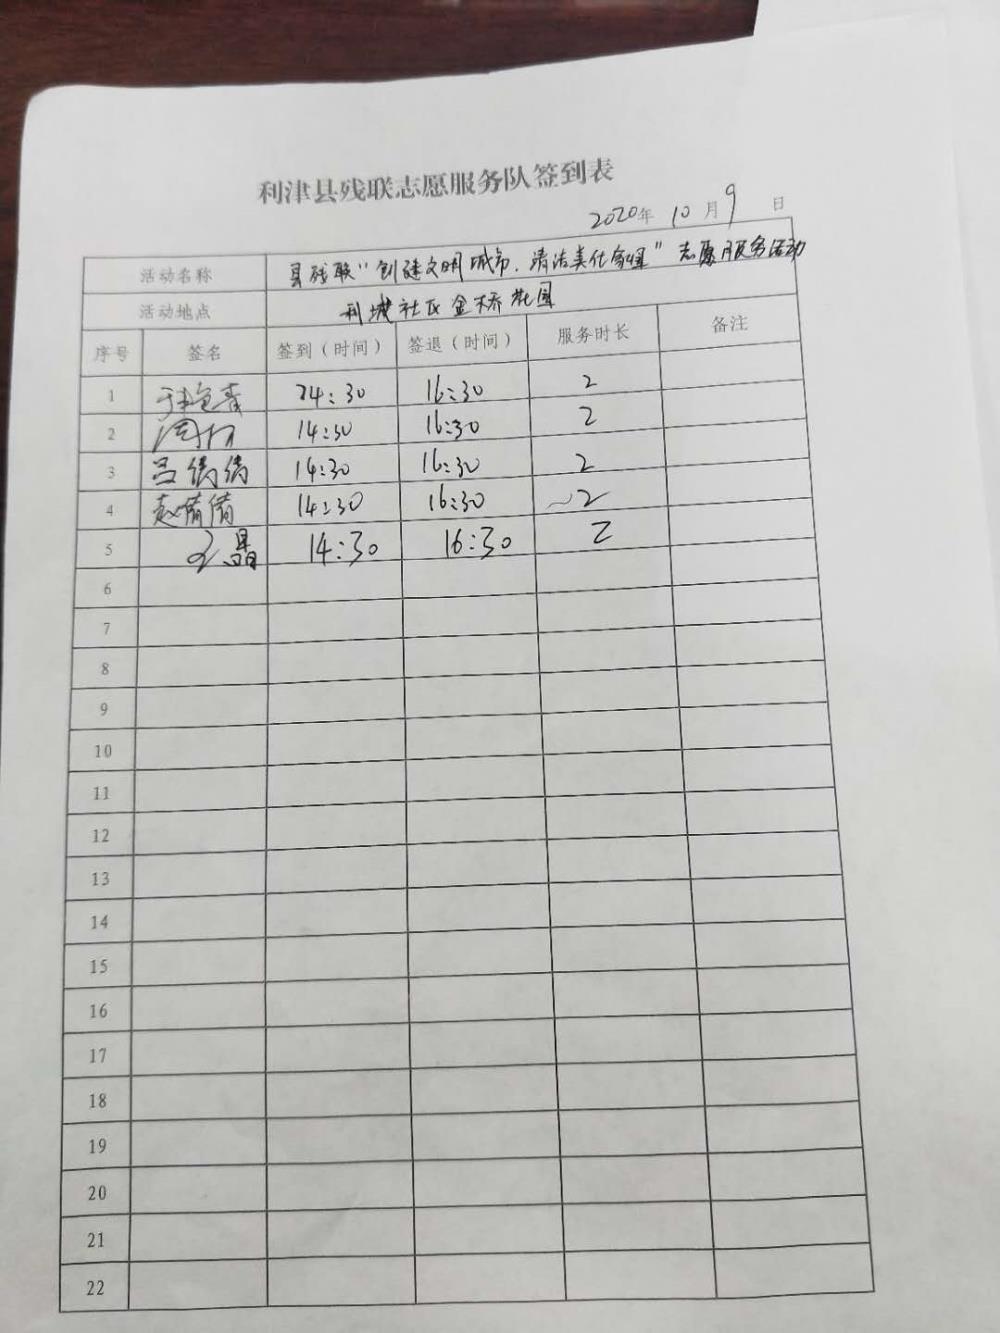 利津县残联志愿服务队签到表
2020年 10月 9 日
活动名称 县残联“创建文明城市.清洁美化家园”志愿服务活动
活动地点 利城社区金桥花园
序号 签名 签到（时间） 签退（时间） 服务时长 备注
1 14:30 16:30 2
2 14:30 16:30 2
3 吕倩倩 14:30 16:30 2
4 赵倩倩 14:30 16:30 2
5 晶 14:30 16:30 2
6
7
8
9
10
11
12
13
14
15
16
17
18
19
20
21
22